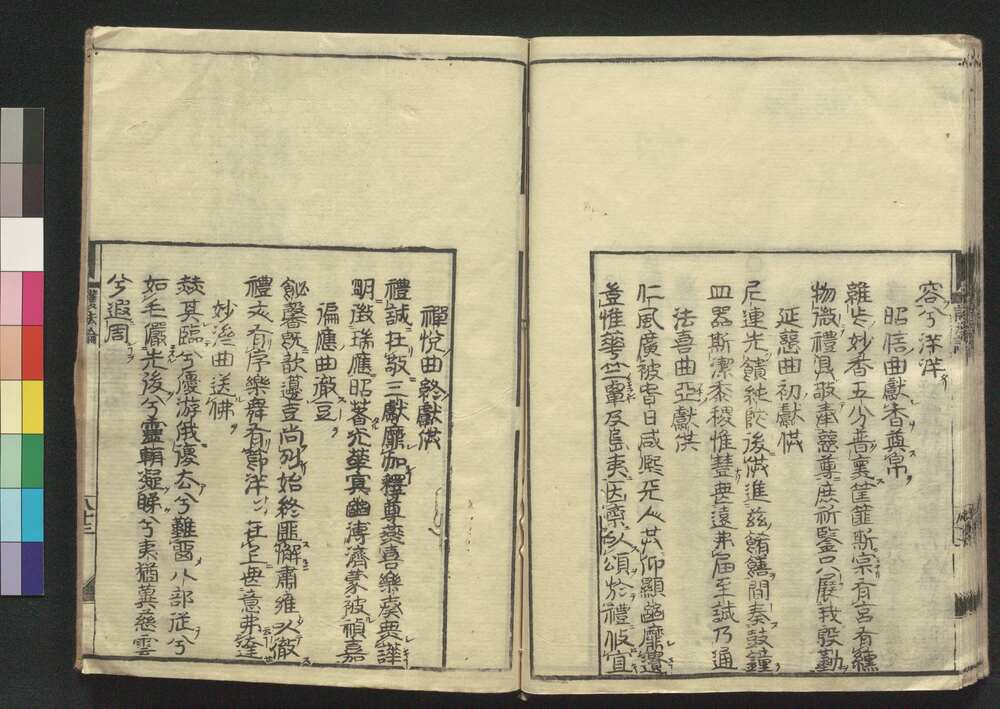 容兮洋洋
昭信曲獻香奠帛
維此妙香五分普熏筐篚斯宗有宮有繻
物微禮具敬奉慈尊庶祈鑒只展我殷勤
延慈曲初獻供
尼連先饋純陀後供進兹餚饍間奏鼓鐘
皿器斯潔黍稷惟豐無遠弗届至誠乃通
法喜曲亞獻供
仁風廣被杳日咸熙先人其仰顯幽靡遺
豈惟華竺覃及島夷因齋以頌於禮攸宜
禪悅曲終獻供
禮誠在敬三獻靡加釋尊燕喜樂奏無譁
明徵瑞應昭著光華寘幽溥濟蒙被禎嘉
徧應曲徹豆
飶馨既歆籩豆尚列始終匪懈肅雍以徹
禮文有序樂舞有節洋洋在上無意弗達
妙濟曲送佛
其臨兮優游俄優去兮難留八部從兮
如毛儼先後兮靈輈凝睇兮夷猶冀慈雲
兮遐周
護法論
八十三